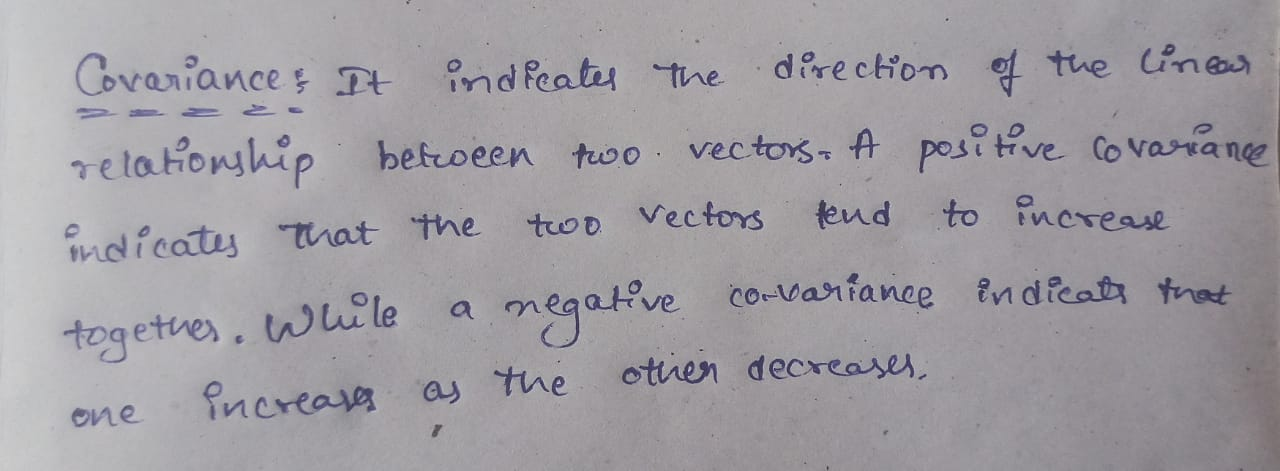 Covariance: It indicates the direction of the linear
relationship between two vectors. A positive covariance
indicates that the two vectors tend to increase
together. While a negative co-variance indicats that
one increases as the other decreases.